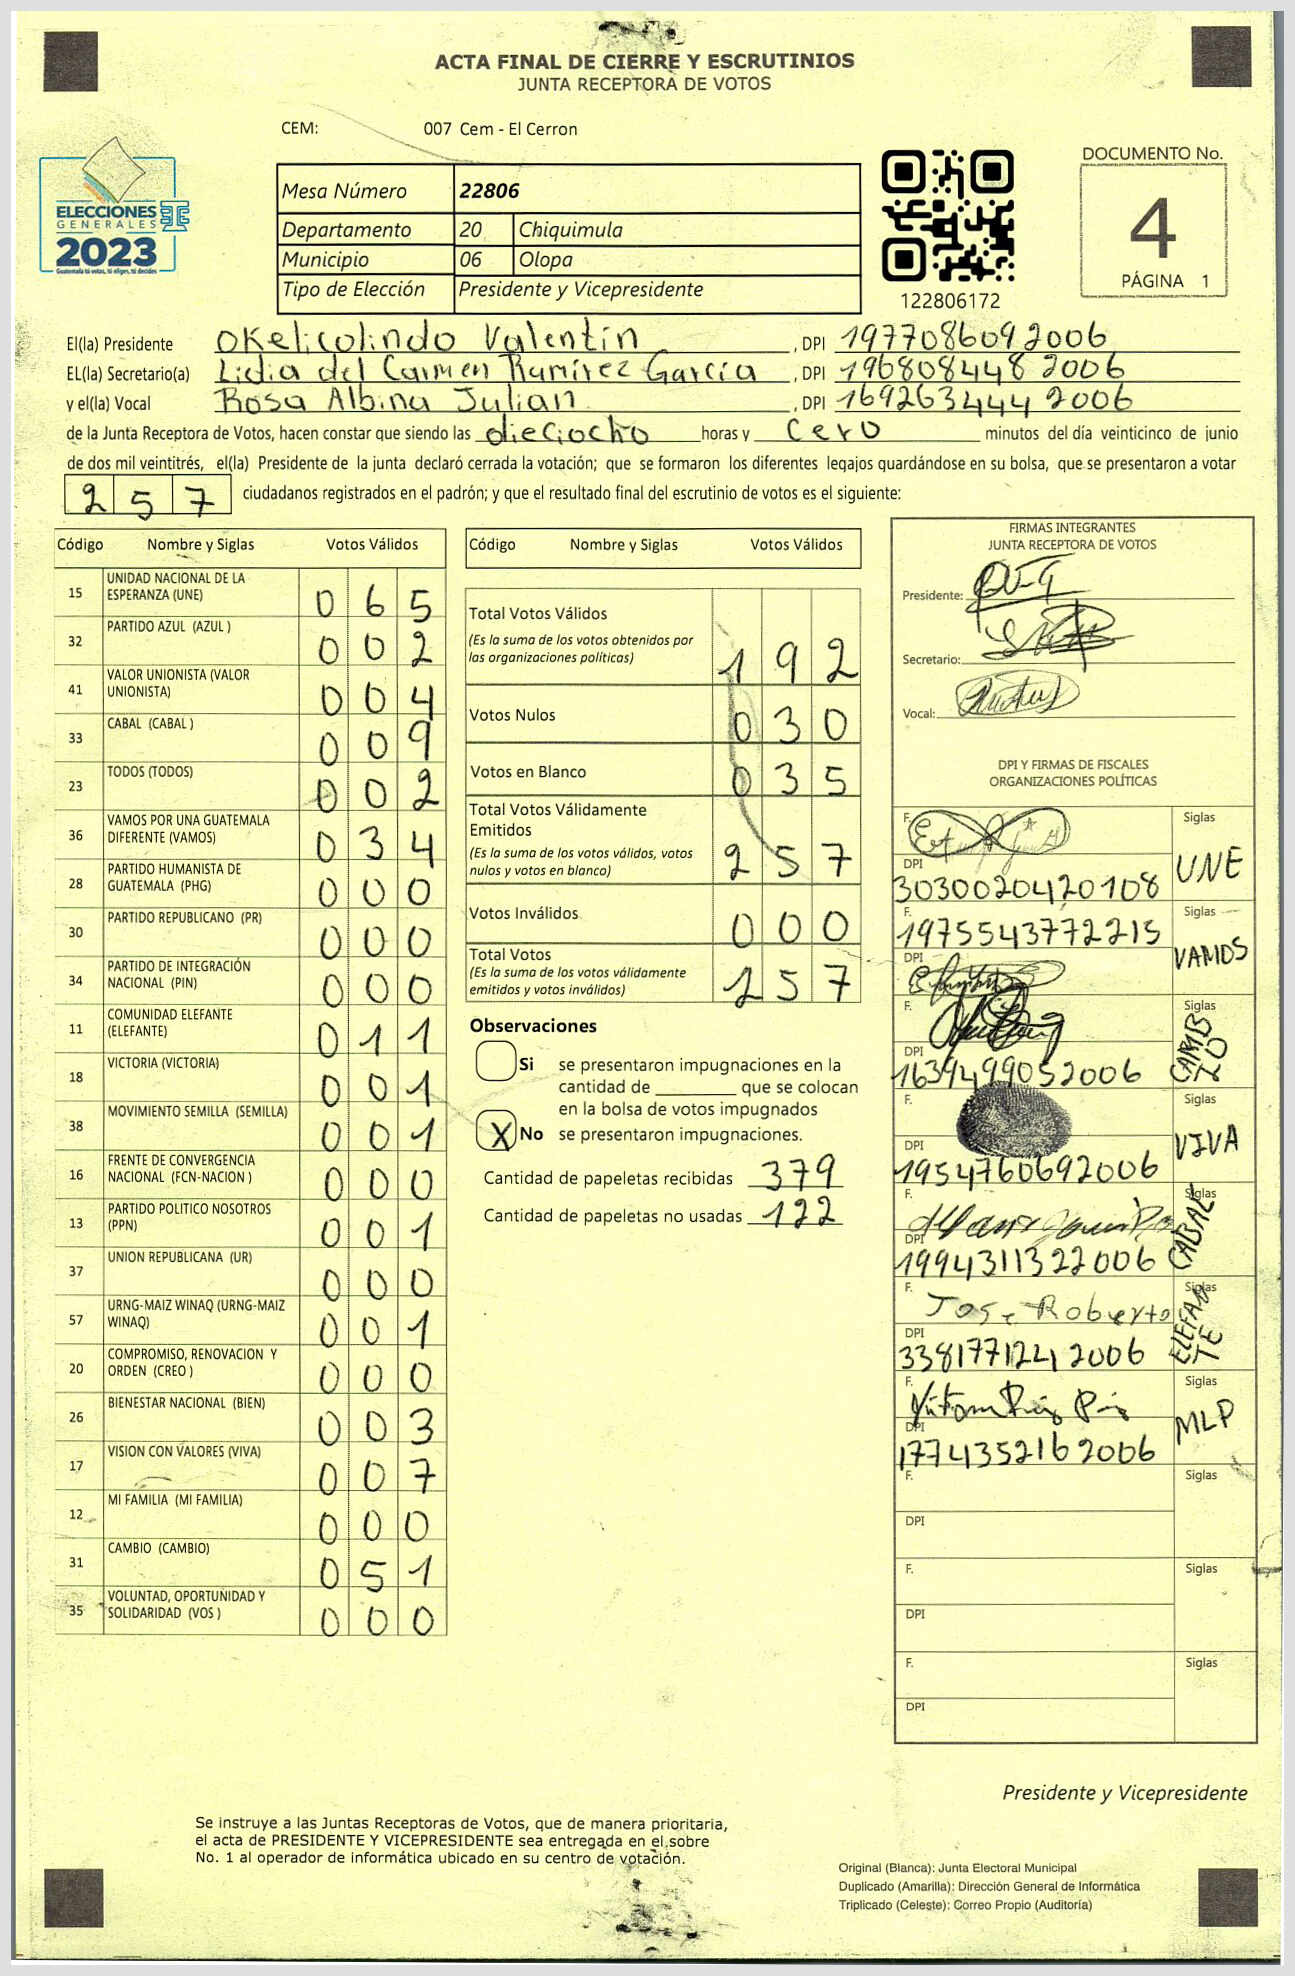 ACTA FINAL DE CIERRE Y ESCRUTINIOS
JUNTA RECEPTORA DE VOTOS
CEM: 007 Cem - El Cerron
ELECCIONES
GENERALES
2023
Guatemala tú votas, tú eliges, tú decides
Mesa Número 22806
Departamento 20 Chiquimula
Municipio 06 Olopa
Tipo de Elección Presidente y Vicepresidente
122806172
DOCUMENTO No.
4
PÁGINA 1
El(la) Presidente Okelicolindo Valentín , DPI 1977086092006
EL(la) Secretario(a) Lidia del Carmen Ramírez García , DPI 196808448 2006
y el(la) Vocal Rosa Albina Julian , DPI 169263444 2006
de la Junta Receptora de Votos, hacen constar que siendo las dieciocho horas y cero minutos del día veinticinco de junio
de dos mil veintitrés, el(la) Presidente de la junta declaró cerrada la votación; que se formaron los diferentes legajos guardándose en su bolsa, que se presentaron a votar
257 ciudadanos registrados en el padrón; y que el resultado final del escrutinio de votos es el siguiente:
Código Nombre y Siglas Votos Válidos
15 UNIDAD NACIONAL DE LA ESPERANZA (UNE) 065
32 PARTIDO AZUL (AZUL ) 002
41 VALOR UNIONISTA (VALOR UNIONISTA) 004
33 CABAL (CABAL ) 009
23 TODOS (TODOS) 002
36 VAMOS POR UNA GUATEMALA DIFERENTE (VAMOS) 034
28 PARTIDO HUMANISTA DE GUATEMALA (PHG) 000
30 PARTIDO REPUBLICANO (PR) 000
34 PARTIDO DE INTEGRACIÓN NACIONAL (PIN) 000
11 COMUNIDAD ELEFANTE (ELEFANTE) 011
18 VICTORIA (VICTORIA) 001
38 MOVIMIENTO SEMILLA (SEMILLA) 001
16 FRENTE DE CONVERGENCIA NACIONAL (FCN-NACION ) 000
13 PARTIDO POLITICO NOSOTROS (PPN) 001
37 UNION REPUBLICANA (UR) 000
57 URNG-MAIZ WINAQ (URNG-MAIZ WINAQ) 001
20 COMPROMISO, RENOVACION Y ORDEN (CREO ) 000
26 BIENESTAR NACIONAL (BIEN) 003
17 VISION CON VALORES (VIVA) 007
12 MI FAMILIA (MI FAMILIA) 000
31 CAMBIO (CAMBIO) 051
35 VOLUNTAD, OPORTUNIDAD Y SOLIDARIDAD (VOS ) 000
Código Nombre y Siglas Votos Válidos
Total Votos Válidos
(Es la suma de los votos obtenidos por
las organizaciones políticas) 192
Votos Nulos 030
Votos en Blanco 035
Total Votos Válidamente
Emitidos
(Es la suma de los votos válidos, votos
nulos y votos en blanco) 257
Votos Inválidos 000
Total Votos
(Es la suma de los votos válidamente
emitidos y votos inválidos) 257
Observaciones
Si se presentaron impugnaciones en la
cantidad de ________ que se colocan
en la bolsa de votos impugnados
X No se presentaron impugnaciones.
Cantidad de papeletas recibidas 379
Cantidad de papeletas no usadas 122
FIRMAS INTEGRANTES
JUNTA RECEPTORA DE VOTOS
Presidente:
Secretario:
Vocal:
DPI Y FIRMAS DE FISCALES
ORGANIZACIONES POLÍTICAS
F. Siglas
DPI UNE
3030020420108
F. Siglas
1975543772215
DPI VAMOS
F. Siglas
DPI CAMBIO
1639499052006
F. Siglas
DPI VIVA
1954760692006
F. Siglas
DPI CABAL
1994311322006
F. Jose Roberto Siglas
DPI ELEFANTE
338177124 2006
F. Siglas
DPI MLP
177435216 2006
F. Siglas
DPI
F. Siglas
DPI
F. Siglas
DPI
Presidente y Vicepresidente
Se instruye a las Juntas Receptoras de Votos, que de manera prioritaria,
el acta de PRESIDENTE Y VICEPRESIDENTE sea entregada en el sobre
No. 1 al operador de informática ubicado en su centro de votación.
Original (Blanca): Junta Electoral Municipal
Duplicado (Amarilla): Dirección General de Informática
Triplicado (Celeste): Correo Propio (Auditoría)